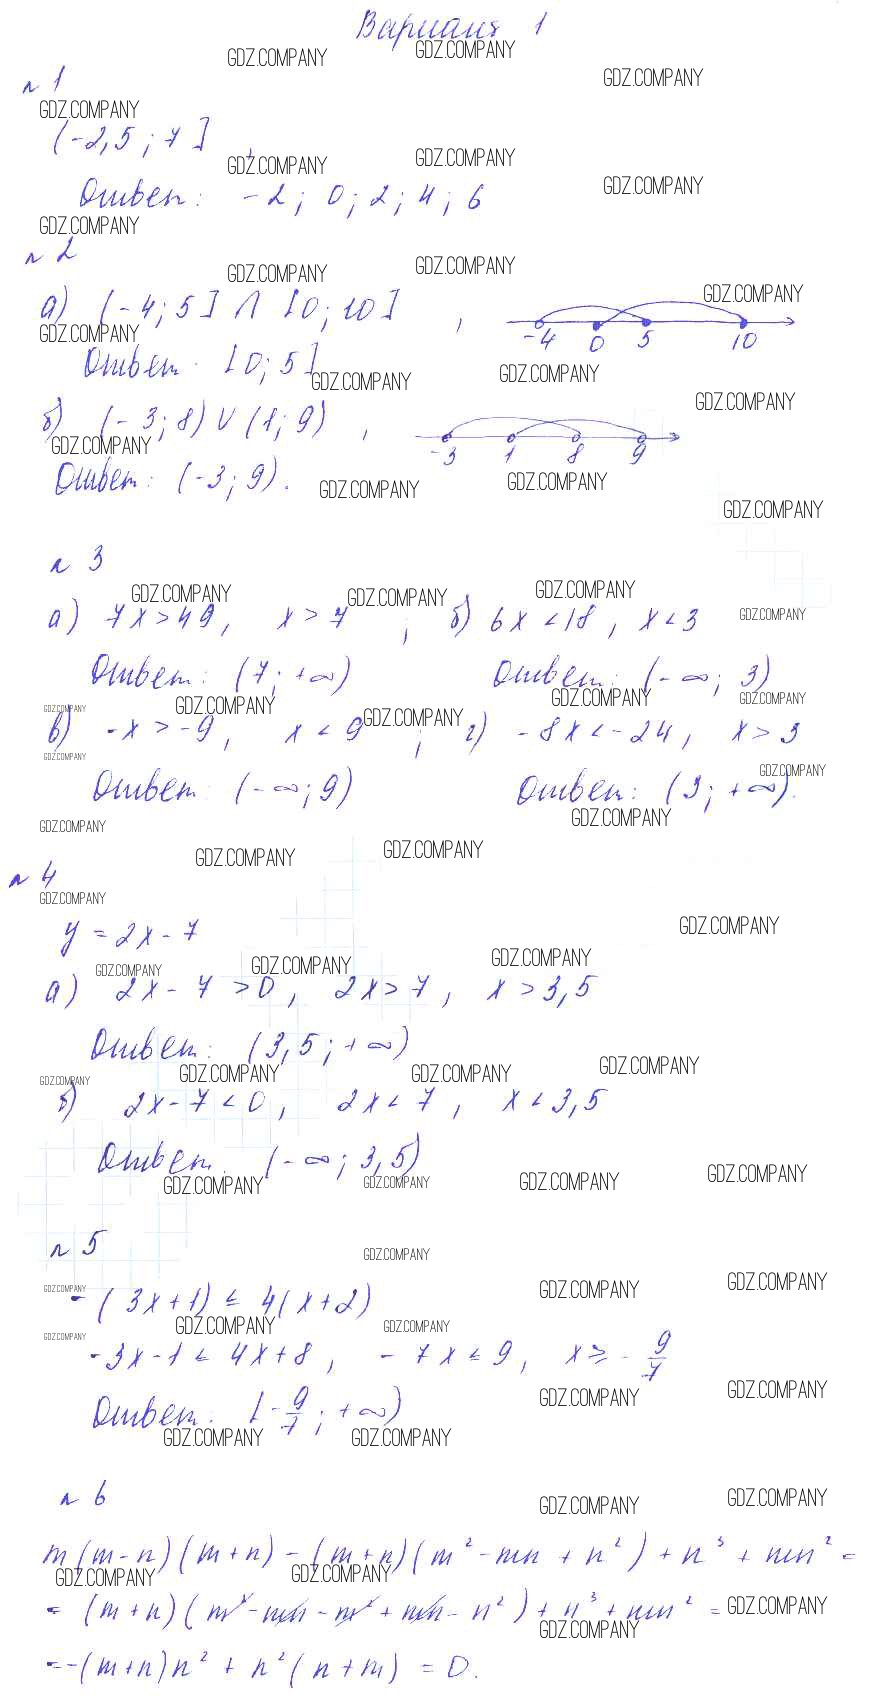 Вариант 1
GDZ.COMPANY GDZ.COMPANY GDZ.COMPANY
№ 1
GDZ.COMPANY
(-2,5 ; 7]
GDZ.COMPANY GDZ.COMPANY GDZ.COMPANY
Ответ: -2; 0; 2; 4; 6
GDZ.COMPANY
№ 2
GDZ.COMPANY GDZ.COMPANY GDZ.COMPANY
а) (-4; 5] ∩ [0; 10] ,
-4 0 5 10
GDZ.COMPANY
Ответ: [0; 5]
GDZ.COMPANY GDZ.COMPANY GDZ.COMPANY
б) (-3; 8) ∪ (1; 9) ,
-3 1 8 9
GDZ.COMPANY
Ответ: (-3; 9).
GDZ.COMPANY GDZ.COMPANY GDZ.COMPANY
№ 3
GDZ.COMPANY GDZ.COMPANY GDZ.COMPANY GDZ.COMPANY
а) 7x > 49, x > 7 ; б) 6x < 18, x < 3
Ответ: (7; +∞) Ответ: (-∞; 3)
GDZ.COMPANY GDZ.COMPANY GDZ.COMPANY GDZ.COMPANY GDZ.COMPANY
в) -x > -9, x < 9 ; г) -8x < -24, x > 3
GDZ.COMPANY GDZ.COMPANY
Ответ: (-∞; 9) Ответ: (3; +∞).
GDZ.COMPANY GDZ.COMPANY
GDZ.COMPANY GDZ.COMPANY
№ 4
GDZ.COMPANY GDZ.COMPANY
y = 2x - 7
GDZ.COMPANY GDZ.COMPANY GDZ.COMPANY
а) 2x - 7 > 0, 2x > 7, x > 3,5
Ответ: (3,5; +∞)
GDZ.COMPANY GDZ.COMPANY GDZ.COMPANY GDZ.COMPANY
б) 2x - 7 < 0, 2x < 7, x < 3,5
Ответ: (-∞; 3,5)
GDZ.COMPANY GDZ.COMPANY GDZ.COMPANY GDZ.COMPANY
№ 5
GDZ.COMPANY
GDZ.COMPANY GDZ.COMPANY GDZ.COMPANY
-(3x+1) ≤ 4(x+2)
GDZ.COMPANY GDZ.COMPANY GDZ.COMPANY
-3x-1 ≤ 4x+8, -7x ≤ 9, x ≥ -9/7
GDZ.COMPANY GDZ.COMPANY
Ответ: [-9/7; +∞)
GDZ.COMPANY GDZ.COMPANY
№ 6
GDZ.COMPANY GDZ.COMPANY
m(m-n)(m+n) - (m+n)(m² - mn + n²) + n³ + mn² =
GDZ.COMPANY GDZ.COMPANY
= (m+n)(m² - mn - m² + mn - n²) + n³ + mn² =
GDZ.COMPANY GDZ.COMPANY
= -(m+n)n² + n²(n+m) = 0.